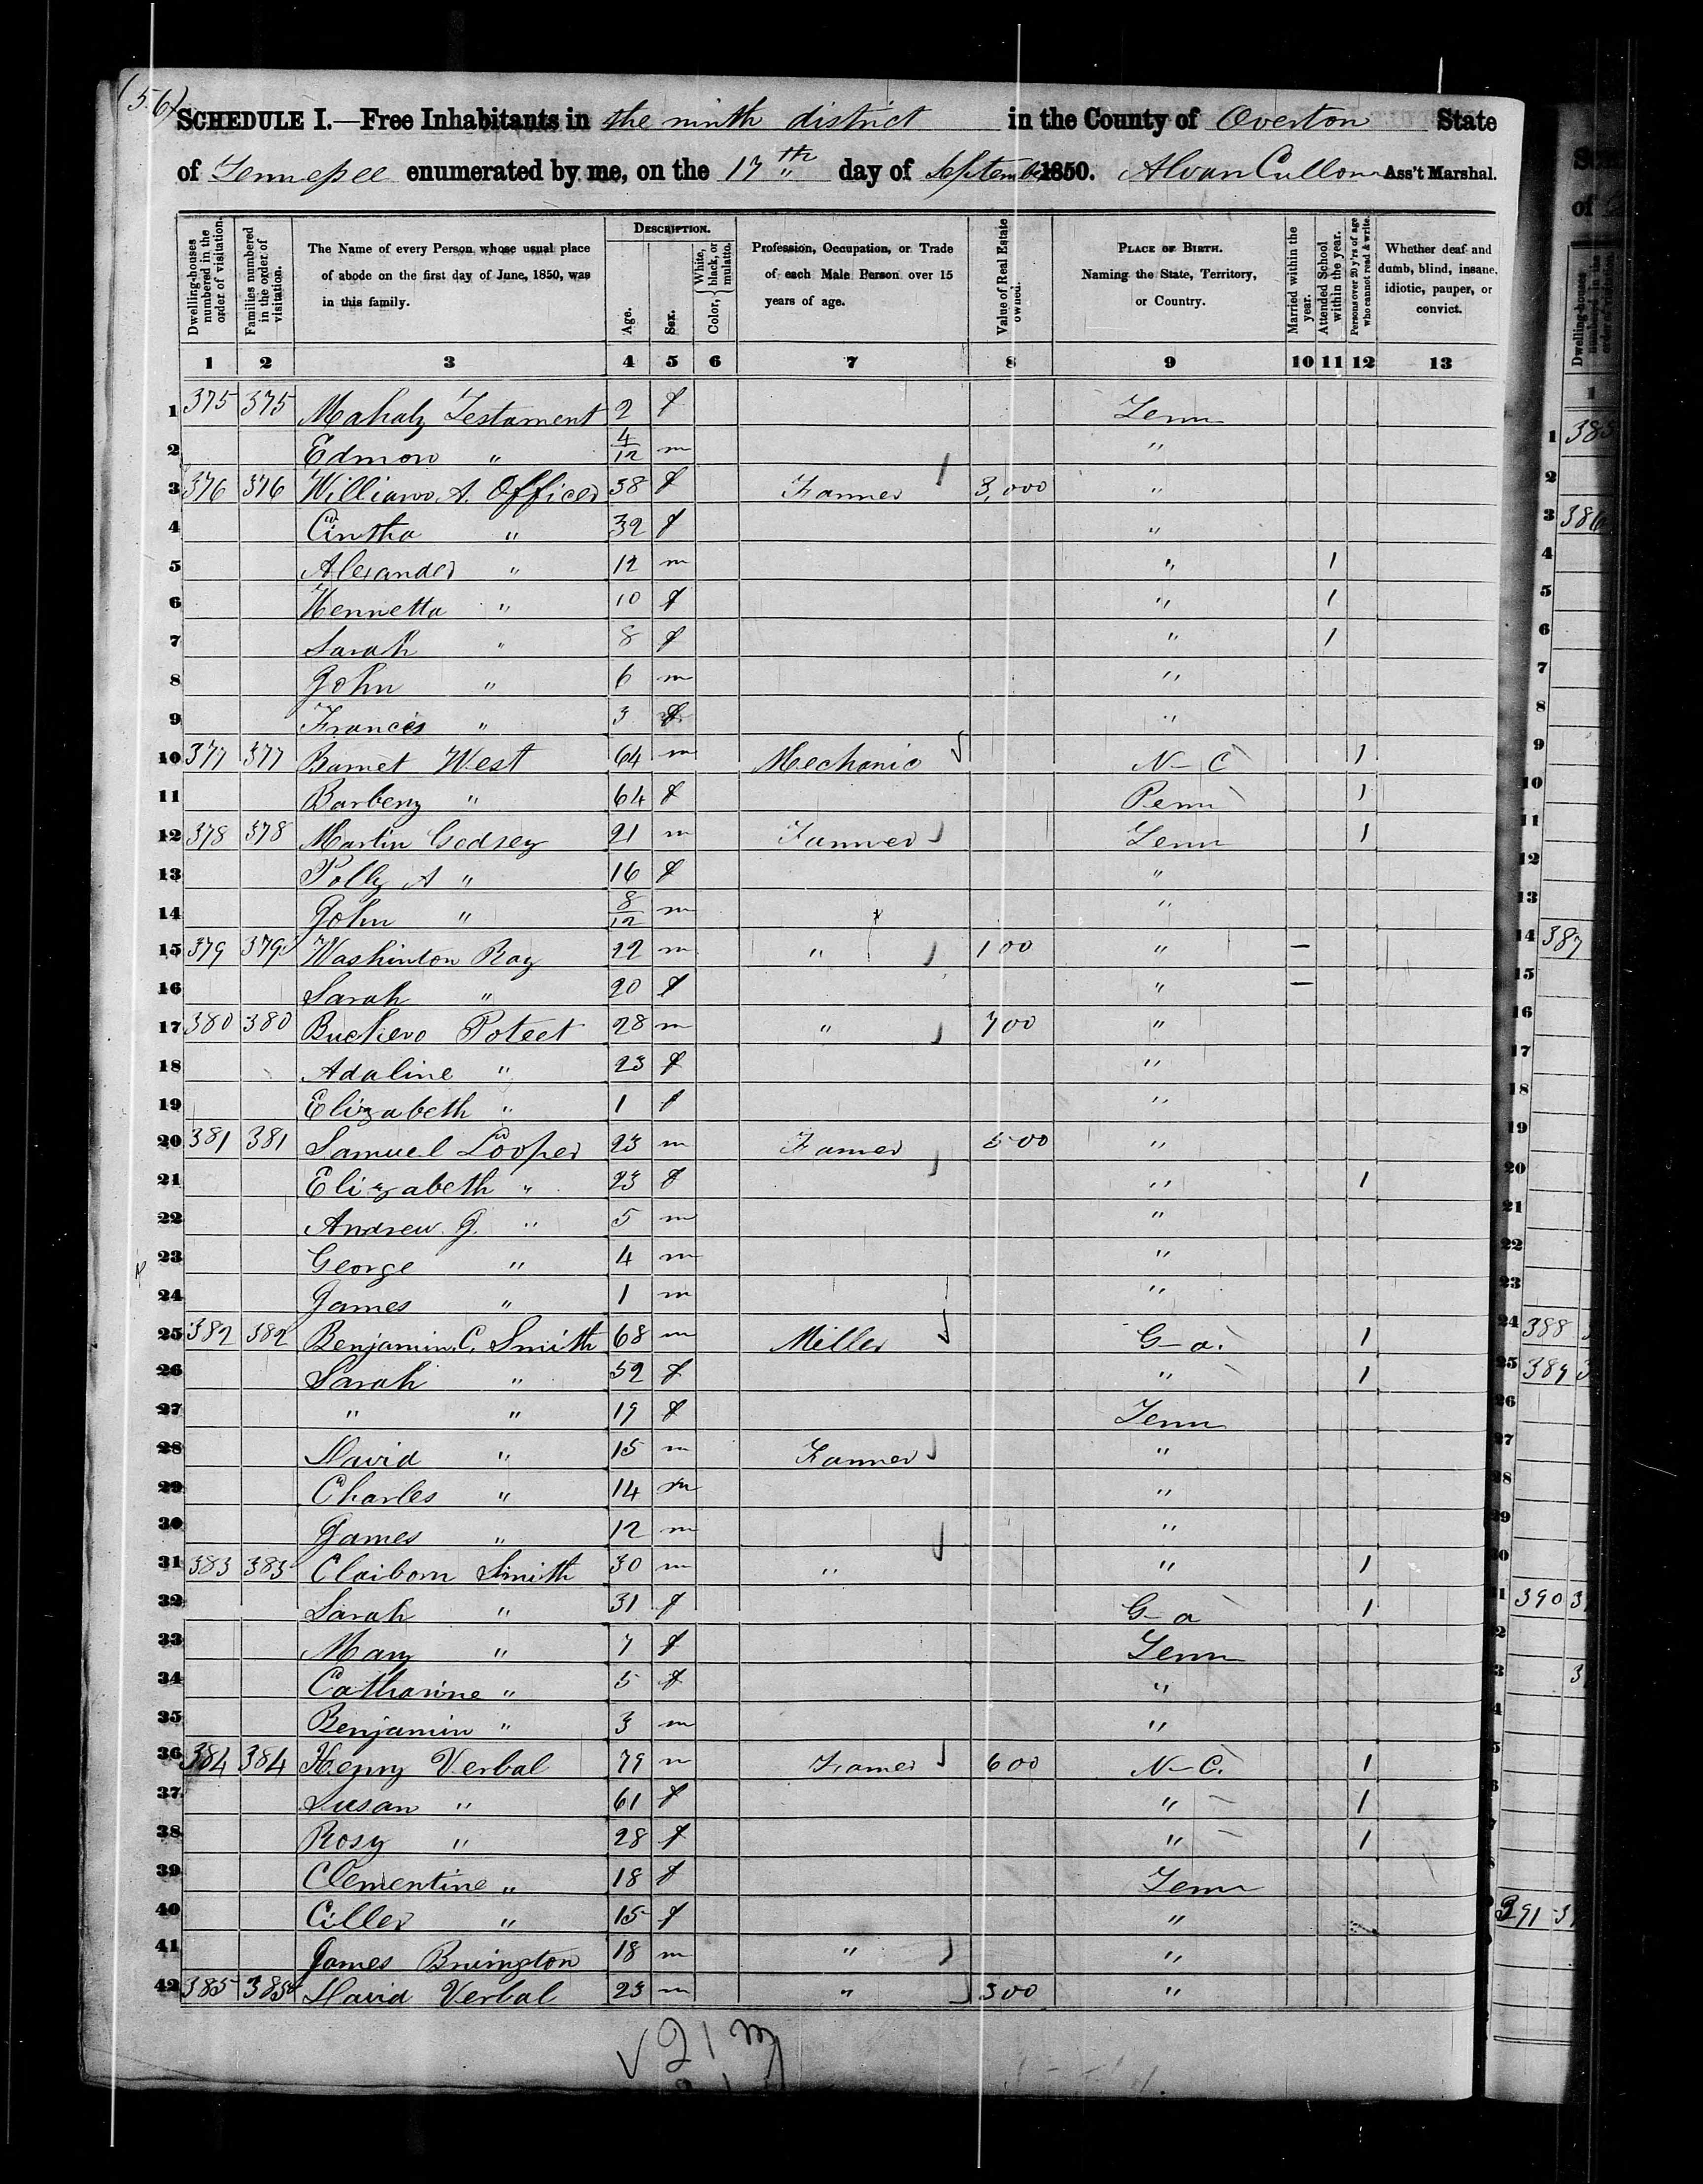 (56)
SCHEDULE I.—Free Inhabitants in the ninth district in the County of Overton State
of Tennessee enumerated by me, on the 17th day of September 1850. Alvan Cullom Ass't Marshal.
Dwelling-houses numbered in the order of visitation. Families numbered in the order of visitation. The Name of every Person whose usual place of abode on the first day of June, 1850, was in this family. DESCRIPTION. Age. Sex. Color, White, black, or mulatto. Profession, Occupation, or Trade of each Male Person over 15 years of age. Value of Real Estate owned. PLACE OF BIRTH. Naming the State, Territory, or Country. Married within the year. Attended School within the year. Persons over 20 y'rs of age who cannot read & write. Whether deaf and dumb, blind, insane, idiotic, pauper, or convict.
1 2 3 4 5 6 7 8 9 10 11 12 13
1 375 375 Mahaly Testament 2 f Tenn
2 Edmon " 4/12 m "
3 376 376 William A. Officer 38 f Farmer 3,000 "
4 Cintha " 32 f "
5 Alexander " 12 m " 1
6 Hennetta " 10 f " 1
7 Sarah " 8 f " 1
8 John " 6 m "
9 Francis " 3 f "
10 377 377 Barnet West 64 m Mechanic N-C 1
11 Barbery " 64 f Penn 1
12 378 378 Martin Godsey 21 m Farmer Tenn 1
13 Polly A " 16 f "
14 John " 8/12 m "
15 379 379 Washinton Ray 22 m " 100 " –
16 Sarah " 20 f " –
17 380 380 Poteet 28 m " 700 "
18 Adaline " 23 f "
19 Elizabeth " 1 f "
20 381 381 Samuel Cooper 23 m Farmer 500 "
21 Elizabeth " 23 f " 1
22 Andrew J. " 5 m "
23 George " 4 m "
24 James " 1 m "
25 382 382 Benjamin C. Smith 68 m Miller G-a. 1
26 Sarah " 52 f " 1
27 " " 19 f Tenn
28 David " 15 m Farmer "
29 Charles " 14 m "
30 James " 12 m "
31 383 383 Claiborn Smith 30 m " " 1
32 Sarah " 31 f G-a 1
33 Mary " 7 f Tenn
34 Catharine " 5 f "
35 Benjamin " 3 m "
36 384 384 Henry Verbal 79 m Farmer 600 N-C. 1
37 Susan " 61 f " 1
38 Rosy " 28 f " 1
39 Clementine " 18 f Tenn
40 Ciller " 15 f "
41 James Bruington 18 m " "
42 385 385 David Verbal 23 m " 300 "
21 m